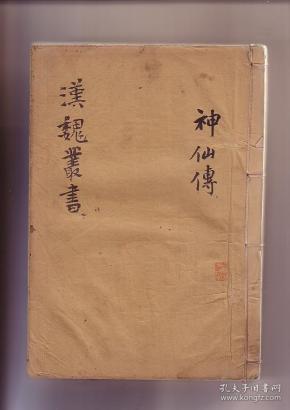 神仙傳
漢魏叢書
孔夫子旧书网
www.kongfz.com